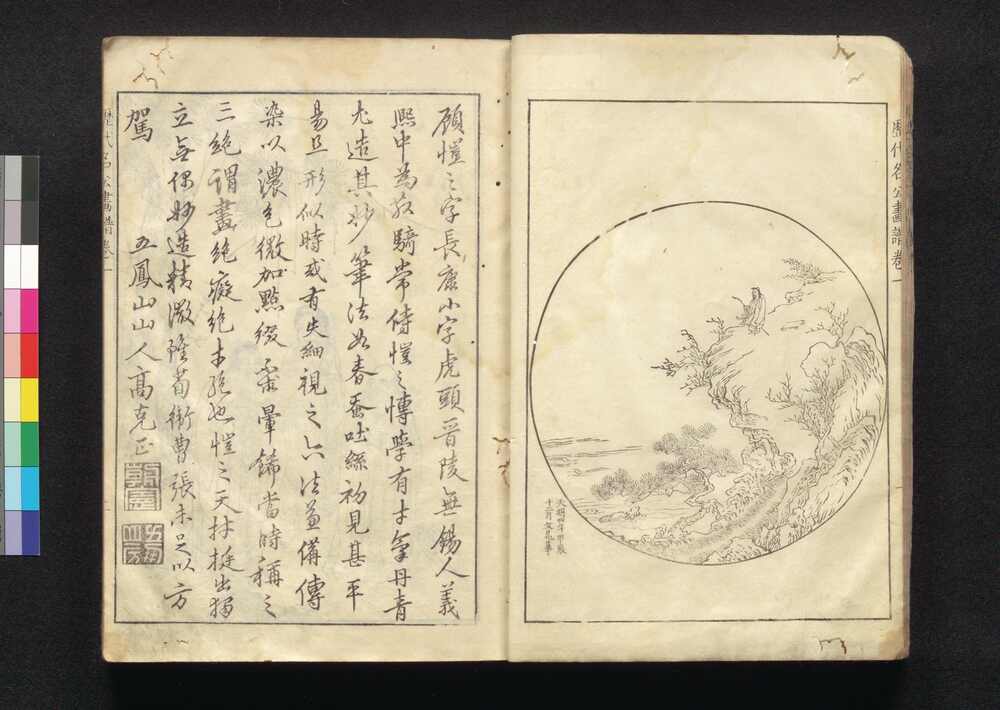 歷代名公畫譜卷一
十二月
顧愷之字長康小字虎頭晉陵無錫人義
熙中為散騎常侍愷之愽學有才氣丹青
尤造其妙筆法如春蚕吐絲初見甚平
易且形似時或有失細視之六法兼備傳
染以濃色微加點綴不暈飾當時稱之
三絕謂畫絕癡絕才絕也愷之天材挺出獨
立無偶妙造精微雖荀衛曹張未足以方
駕
五鳳山山人高克正
歷代名公畫譜卷一